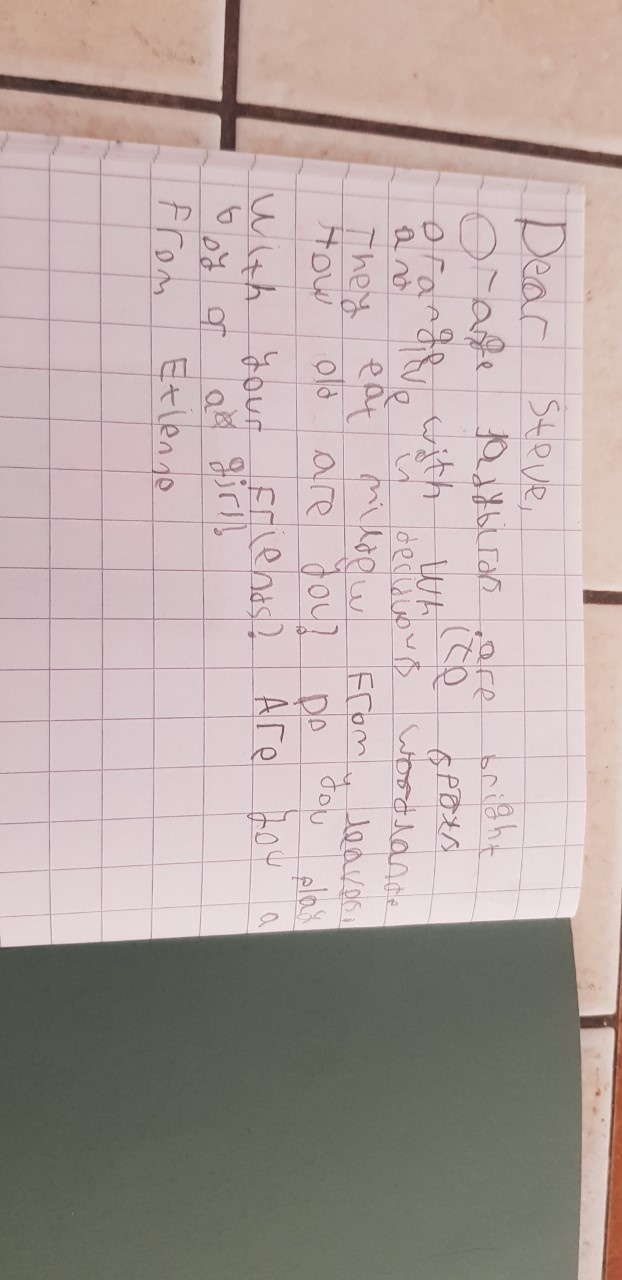 Dear Steve,
Orange ladybirds are bright
orange with white spots
and live in deciduous woodland.
They eat mildew From leaves.
How old are you? Do you play
With your Friends? Are you a
boy or a girl?
From Etienne